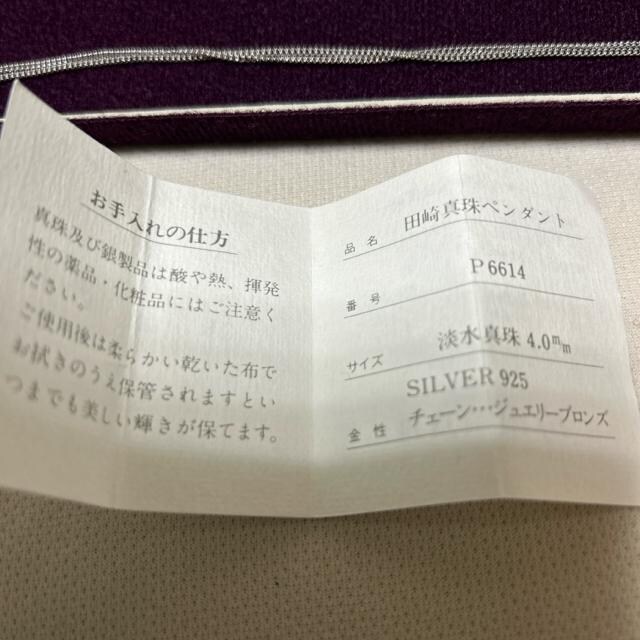 お手入れの仕方
真珠及び銀製品は酸や熱、揮発
性の薬品・化粧品にはご注意く
ださい。
ご使用後は柔らかい乾いた布で
お拭きのうえ保管されますとい
つまでも美しい輝きが保てます。
品名 田崎真珠ペンダント
番号 P6614
サイズ 淡水真珠4.0mm
SILVER 925
金性 チェーン…ジュエリーブロンズ